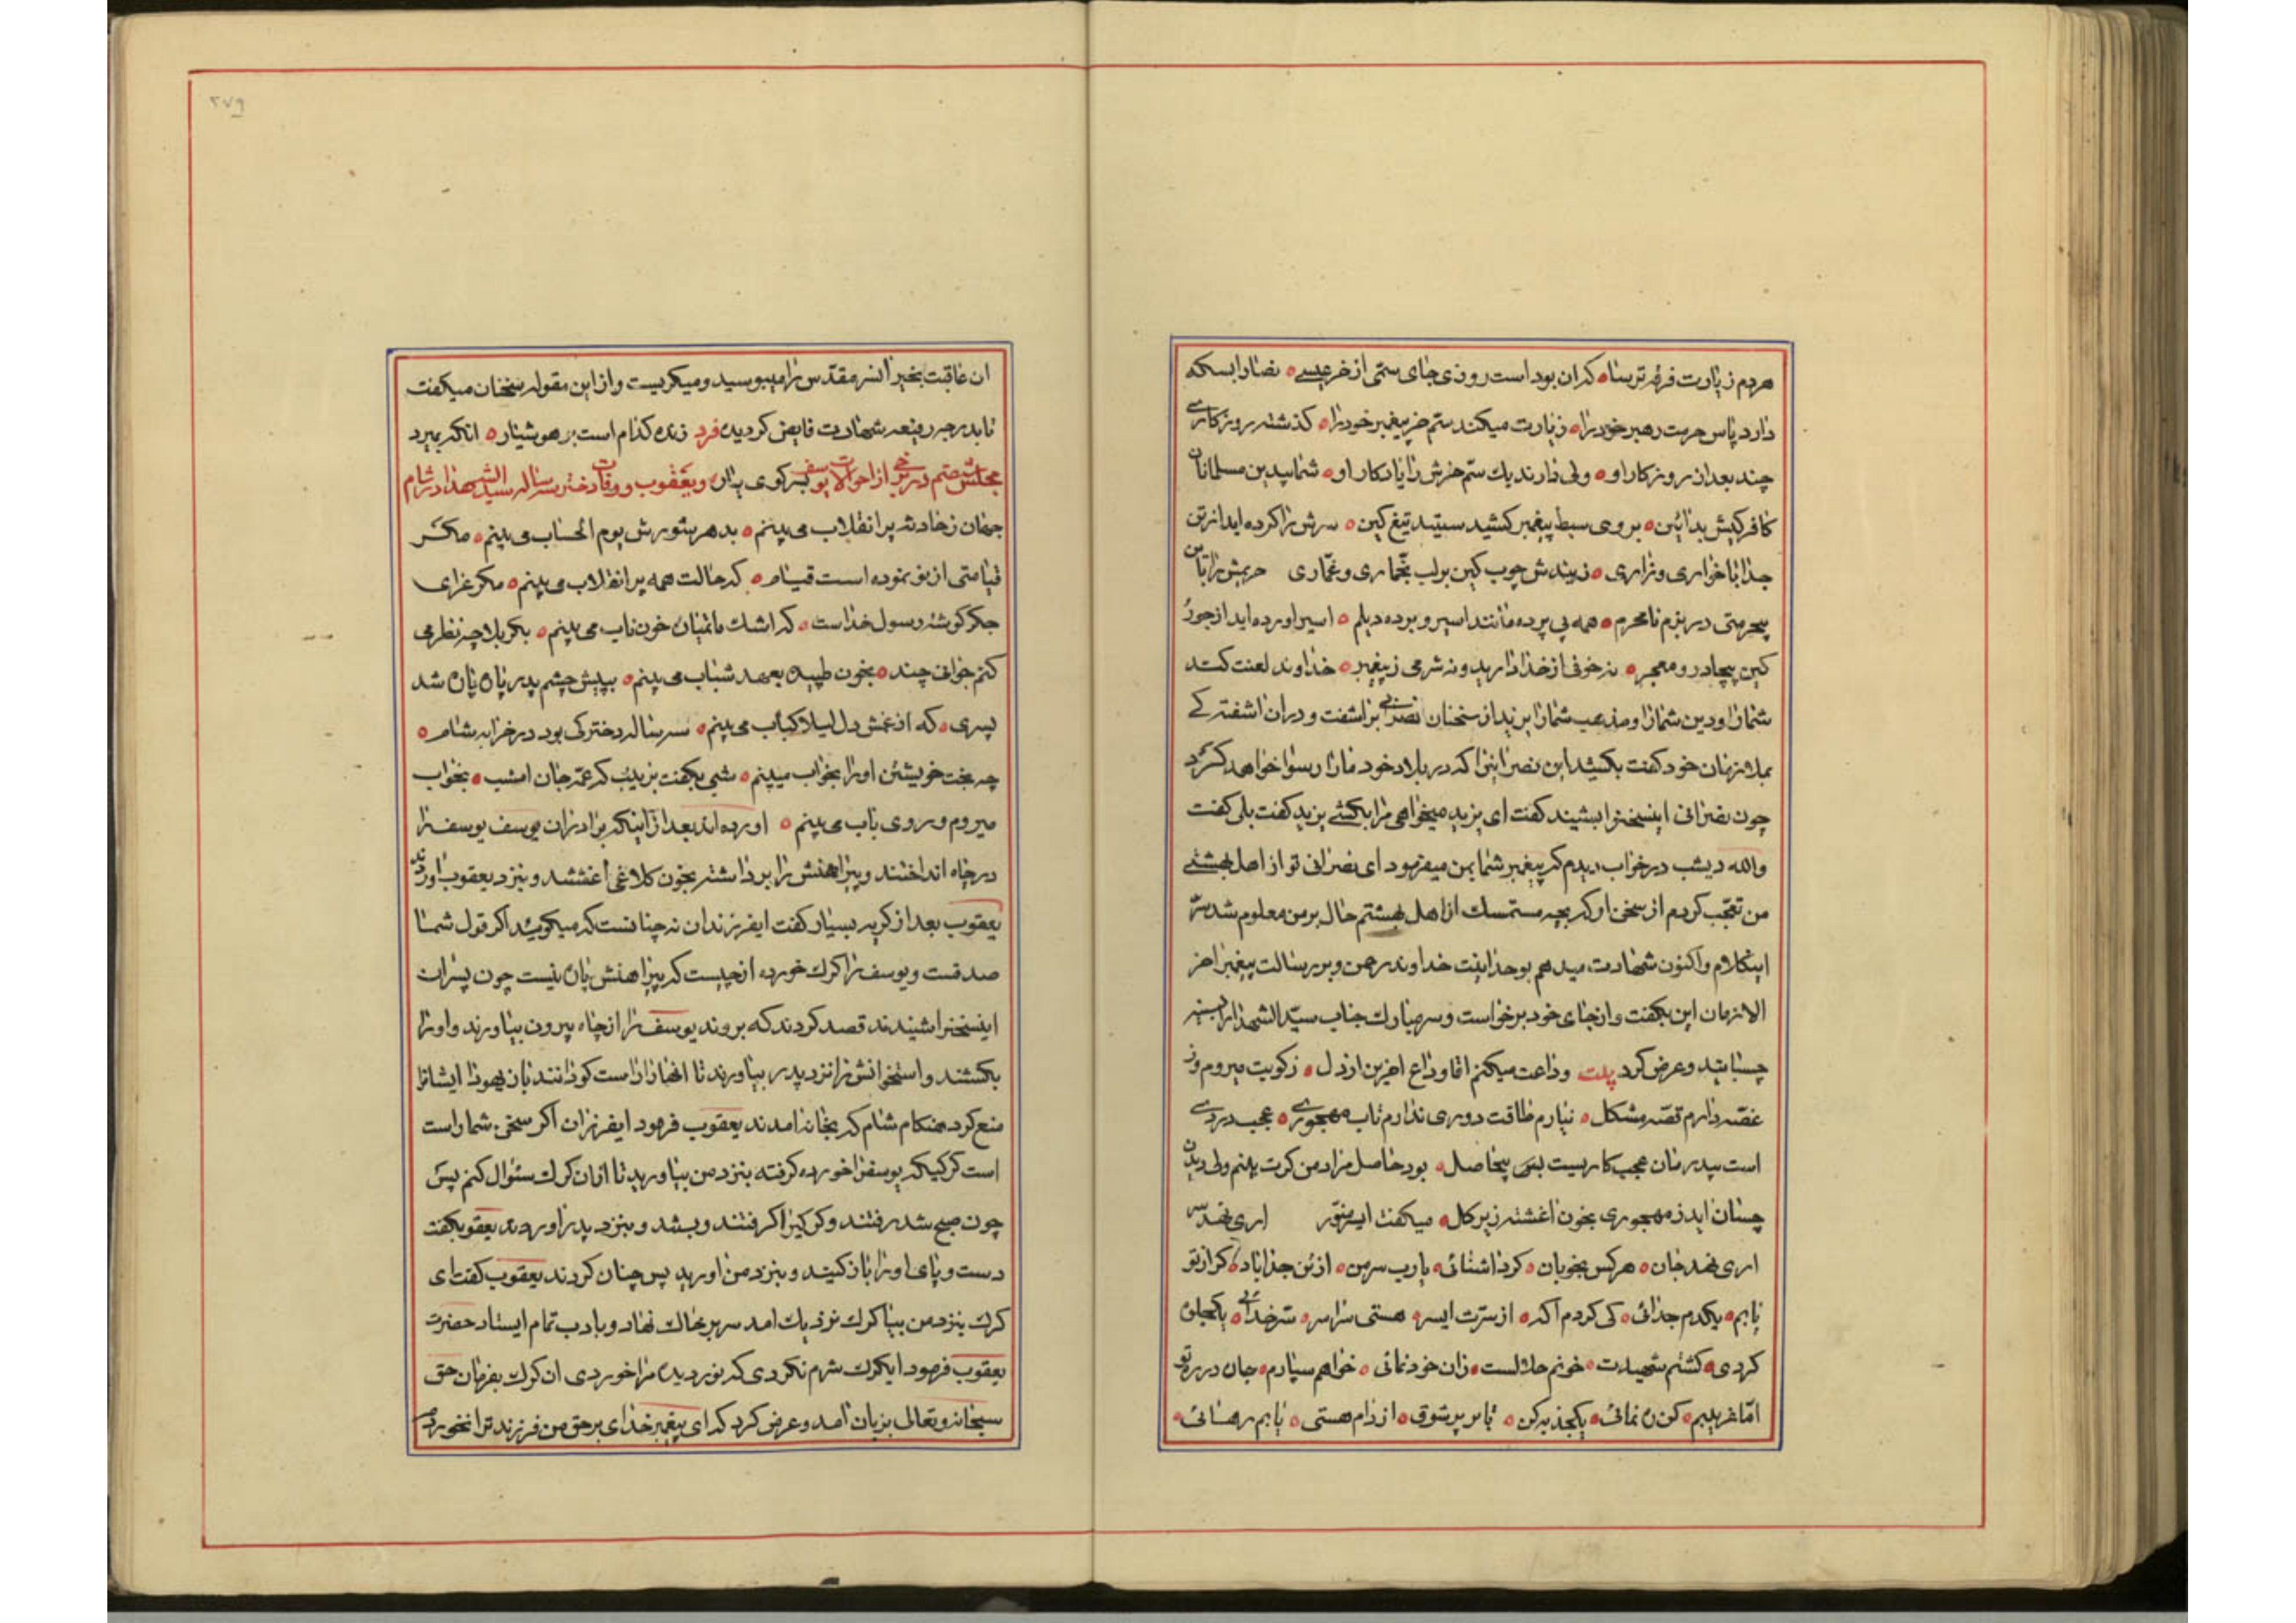 مردم زیارت فرقه ترسا که ان بوداست روزی جای ستمی از خر عیسے نصارا بسکه
دارد پاس حرمت رهبر خود را زیارت میکند ستم خر پیغمبر خود را کذشته روزکارے
چند بعد از روزکار او ولی دارند یك ستم خرش را یادکار او شما بیدین مسلمانان
کافر کیش بدائین بروی سبط پیغمبر کشیدستید تیغ کین سرش را کرده اید از تن
جدا با خواری و زاری زنیدش چوب کین بر لب بخماری و غماری حریمش را باین
بیحرمتی در بزم نامحرم همه بی پرده مانند اسیر و برده دیلم اسیر اورده اید از جور
کین بیچادر و معجر نه خوفی از خدا دارید و نه شرمی ز پیغمبر خداوند لعنت کند
شمارا و دین شمارا و مذهب شمارا یزید از سخنان نصرانی براشفت و دران اشفتکے
بملازمان خود کفت بکشید این نصرانیرا که در بلاد خود مارا رسوا خواهد کرد
چون نصرانی اینسخنرا بشنید کفت ای یزید میخواهی مرا بکشے یزید کفت بلی کفت
والله دیشب در خواب دیدم که پیغمبر شما بمن میفرمود ای نصرانی تو از اهل بهشتے
من تعجب کردم از سخن او که بچه مستمسك از اهل بهشتم حال بر من معلوم شد سر
اینکلام واکنون شهادت میدهم بوحدانیت خداوند رحمن و بر رسالت پیغمبر اخر
الزمان این بکفت و از جای خود برخواست و سر مبارك جناب سید الشهدا را بسینه
چسبانید و عرض کرد بیت وداعت میکنم اقا وداع اخرین از دل ز کویت میروم وز
غصه دارم قصه مشکل نیارم طاقت دوری ندارم تاب مهجورے عجب دردے
است بیدرمان عجب کاریست بس بیحاصل بود حاصل مراد من کرت بینم ولی دیدن
چسان اید ز مهجوری بخون اغشته زیر کل میکفت ایسر منور اری نهد سر
اری نهد جان هر کس بخوبان کرد اشنائی یارب سر من از تن جدا باد کر از تو
یابم یکدم جدائی کی کردم اکه از سرت ایسر هستی سراسر سر خدائی یکجلوه
کردی کشتم شهیدت خونم حلالست زان خودنمائی خواهم سپارم جان در ره تو
اما غریبم کن رهنمائی یکجذبه کن تا پر بشوق از دام هستی یابم رهائی
۲۷۹
ان عاقبت بخیر انسر مقدس را میبوسید و میکریست و از این مقوله سخنان میکفت
تا بدرجه رفیعه شهادت فایض کردید فرد زنده کدام است بر هوشیار انکه بمیرد
بسر کوی یار مجلس هشتم در برخی از احوالات یوسف و یعقوب و وفات دختر سه ساله سید الشهدا در شام
جهان ز حادثه پر انقلاب می بینم بدهر شورش یوم الحساب می بینم مکر
قیامتی از نو نموده است قیام که حالت همه پر انقلاب می بینم مکر عزای
جکر کوشه رسول خداست که اشك ماتمیان خون ناب می بینم بکربلا چه نظر می
کنم جوانی چند بخون طپیده بعهد شباب می بینم بپیش چشم پدر پاره پاره شد
پسری که از غمش دل لیلا کباب می بینم سه ساله دخترکی بود در خرابه شام
چه بخت خویشتن اورا بخواب میبینم شبی بکفت بزینب که عمه جان امشب بخواب
میروم و روی باب می بینم اورده اند بعد از اینکه برادران یوسف یوسف را
در چاه انداختند و پیراهنش را برداشته بخون کلاغی اغشتند و بنزد یعقوب اوردند
یعقوب بعد از کریه بسیار کفت ایفرزندان نه چنانست که میکوئید اکر قول شما
صدقست و یوسف را کرك خورده از چیست که پیراهنش پاره نیست چون پسران
اینسخنرا شنیدند قصد کردند که بروند یوسف را از چاه بیرون بیاورند و اورا
بکشند و استخوانش را نزد پدر بیاورند تا انها را راست کو دانند باز یهودا ایشانرا
منع کرد هنکام شام که بخانه امدند یعقوب فرمود ایفرزندان اکر سخن شما راست
است کرکیکه یوسفرا خورده کرفته بنزد من بیاورید تا از ان کرك سئوال کنم پس
چون صبح شد رفتند و کرکیرا کرفتند و بستند و بنزد پدر اوردند یعقوب کفت
دست و پای اورا باز کنید و بنزد من اورید پس چنان کردند یعقوب کفت ای
کرك بنزد من بیا کرك نزدیك امد سر بر خاك نهاد و با ادب تمام ایستاد حضرت
یعقوب فرمود ایکرك شرم نکردی که نور دیده مرا خوردی ان کرك بفرمان حق
سبحانه و تعالی بزبان امد و عرض کرد که ای پیغمبر خدای برحق من فرزند ترا نخوردم